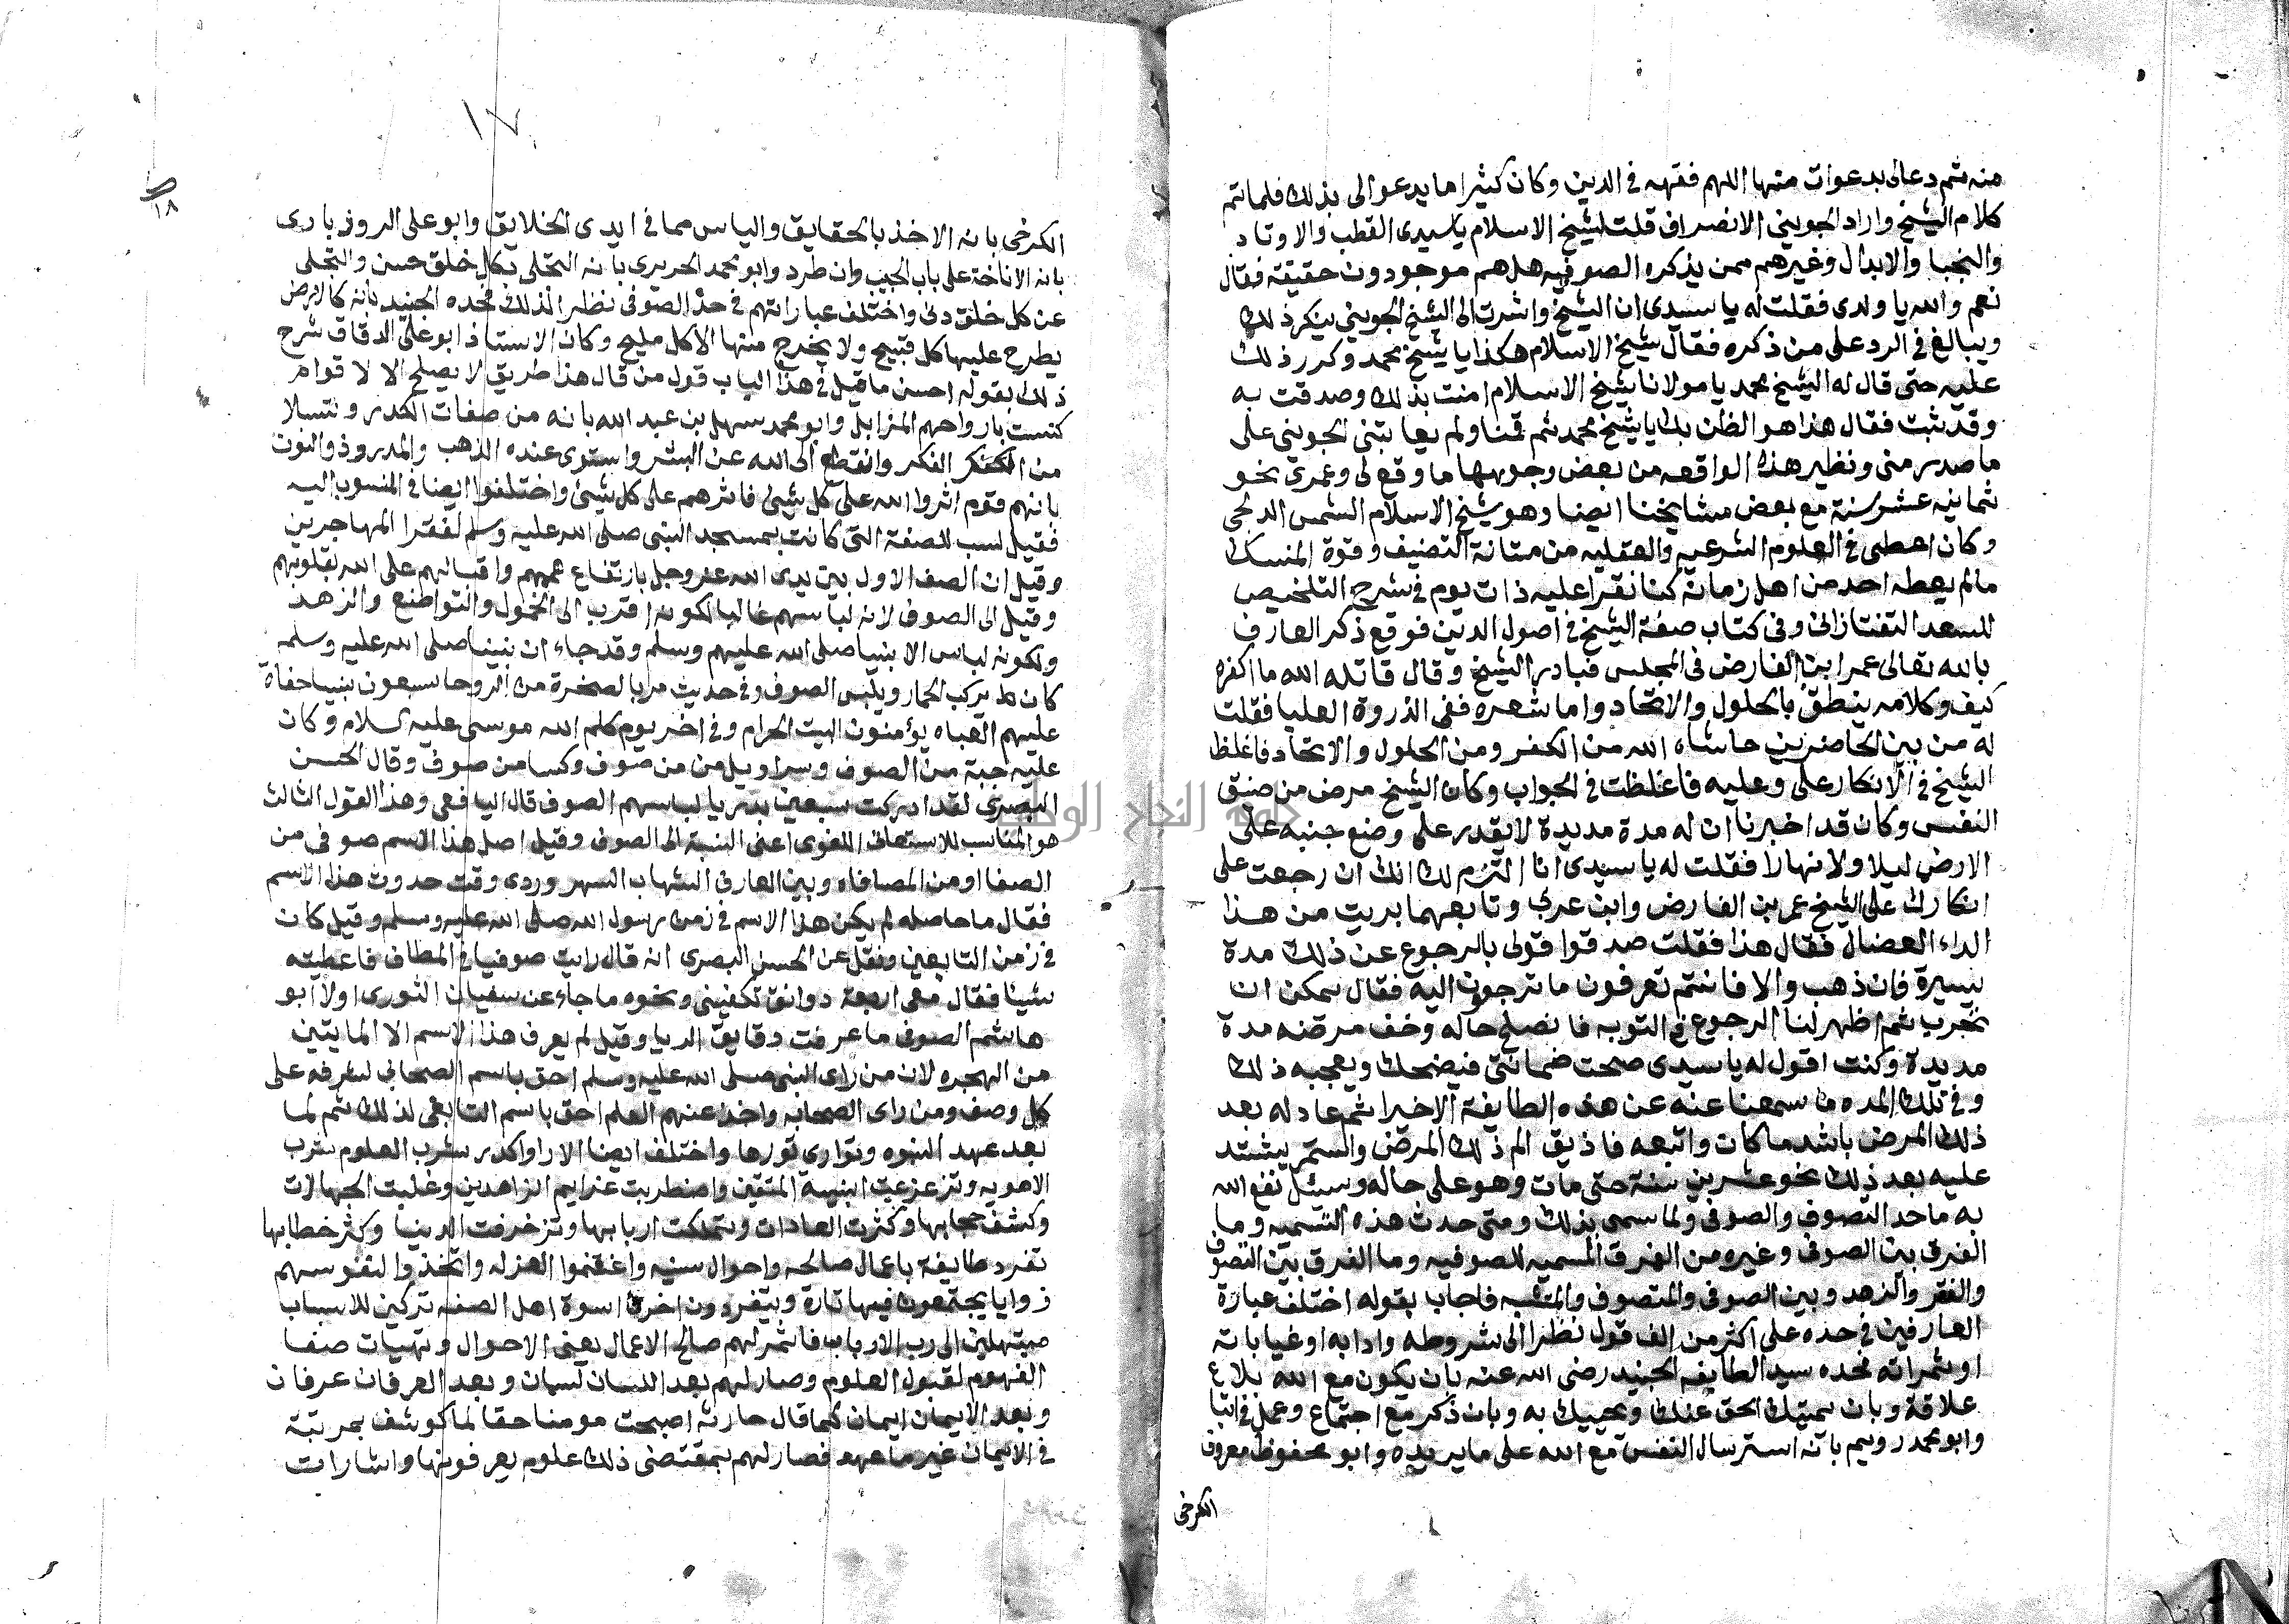 منه ثم دعا لى بدعوات منها اللهم فقهه فى الدين وكان كثيرا ما يدعو الى بذلك فلما تم
كلام الشيخ واراد الجوينى الانصراف قلت لشيخ الاسلام يا سيدى القطب والاوتاد
والنجبا والابدال وغيرهم ممن يذكره الصوفيه هل هم موجودون حقيقة فقال
نعم والله يا ولدى فقلت له يا سيدى ان الشيخ واشرت الى الشيخ الجوينى ينكر ذلك
ويبالغ فى الرد على من ذكره فقال شيخ الاسلام هكذا يا شيخ محمد وكرر ذلك
عليه حتى قال له الشيخ محمد يا مولانا شيخ الاسلام امنت بذلك وصدقت به
وقد ثبت فقال هذا هو الظن بك يا شيخ محمد ثم قمنا ولم يعاتبنى الجوينى على
ما صدر منى ونظير هذه الواقعه من بعض وجوهها ما وقع لى وعمرى نحو
ثمانيه عشر سنة مع بعض مشايخنا ايضا وهو شيخ الاسلام الشمس الدلجى
وكان اعطى فى العلوم الشرعيه والعقليه من متانة التصنيف وقوة المنسك
ما لم يعطه احد من اهل زمانه كنا نقرا عليه ذات يوم فى شرح التلخيص
للسعد التفتازانى وفى كتاب صفة الشيخ فى اصول الدين فوقع ذكر العارف
بالله تعالى عمر ابن الفارض فى المجلس فبادر الشيخ وقال قاتله الله ما اكفره
كيف وكلامه ينطق بالحلول والاتحاد واما شعره ففى الذروة العليا فقلت
له من بين الحاضرين حاشاه الله من الكفر ومن الحلول والاتحاد فاغلظ
الشيخ فى الانكار على وعليه فاغلظت فى الجواب وكان الشيخ مرض من ضيق
النفس وكان قد اخبرنا ان له مدة مديدة لا يقدر على وضع جنبه على
الارض ليلا ولا نهارا فقلت له يا سيدى انا التزم لك انك ان رجعت على
انكارك على الشيخ عمر بن الفارض وابن عربى وتابعهما بريت من هذا
الداء العضال فقال هذا فقلت صدقوا قولى بالرجوع عن ذلك مدة
يسيرة فان ذهب والا فانتم تعرفون ما ترجون اليه فقال يمكن ان
نجرب ثم اظهر لنا الرجوع فى التوبه فانصلح حاله وخف مرضه مدة
مديدة وكنت اقول له يا سيدى صحت ضمانتى فيضحك ويعجبه ذلك
وفى تلك المده ما سمعنا عنه عن هذه الطايفة الا خيرا ثم عاد له بعد
ذلك المرض باشد ما كان واتبعه فاذيق الم ذلك المرض واستمر يشتد
عليه بعد ذلك نحو عشرين سنة حتى مات وهو على حاله وسئل نفع الله
به ما حد التصوف والصوفى ولما سمى بذلك ومتى حدث هذه التسميه وما
الفرق بين الصوفى وغيره من الفرق المسميه للصوفيه وما الفرق بين التصوف
والفقر والزهد وبين الصوفى والمتصوف والمتشبه فاجاب بقوله اختلف عبارة
العارفين فى حده على اكثر من الف قول نظرا الى شروطه وادابه او غياباته
او ثمراته فحده سيد الطايفه الجنيد رضى الله عنه بان يكون مع الله بلا ع
علاقة وبان يميتك الحق عنك ويحييك به وبان ذكر مع اجتماع وعمل فى اتبا
وابو محمد رويم بانه استرسال النفس مع الله على ما يريده وابو محفوظ معروف
الكرخى
١٧
ص ١٨
الكرخى بانه الاخذ بالحقايق والياس مما فى ايدى الخلايق وابو على الروذبارى
بانه الاناخة على باب الحبيب وان طرد وابو محمد الجريرى بانه التحلى بكل خلق حسن والتخلى
عن كل خلق دنى واختلف عباراتهم فى حد الصوفى نظرا لذلك فحده الجنيد بانه كالارض
يطرح عليها كل قبيح ولا يخرج منها الا كل مليح وكان الاستاذ ابو على الدقاق شرح
ذلك بقوله احسن ما قيل فى هذا الباب قول من قال هذا طريق لا يصلح الا لاقوام
كنست بارواحهم المزابل وابو محمد سهل بن عبد الله بانه من صفات الكدر وتسلا
من الفكر وانقطع الى الله عن البشر واستوى عنده الذهب والمدر وذو النون
بانهم قوم اثروا الله على كل شئ فاثرهم على كل شئ واختلفوا ايضا فى المنسوب اليه
فقيل نسب للصفة التى كانت بمسجد النبى صلى الله عليه وسلم لفقرا المهاجرين
وقيل ان الصف الاول بين يدى الله عز وجل بارتفاع هممهم واقبالهم على الله بقلوبهم
وقيل الى الصوف لانه لباسهم غالبا لكونه اقرب الى الخمول والتواضع والزهد
ولكونه لباس الانبيا صلى الله عليهم وسلم وقد جاء ان نبينا صلى الله عليه وسلم
كان يركب الحمار ويلبس الصوف وفى حديث مر بالصخرة من الروحا سبعون نبيا حفاة
عليهم العباه يؤمنون البيت الحرام وفى اخر يوم كلم الله موسى عليه السلام وكان
عليه جبة من الصوف وسراويل من من صوف وكسا من صوف وقال الحسن
البصرى لقد ادركت سبعين بدريا لباسهم الصوف قال اليافعى وهذا القول الثالث
هو المناسب للاستعاق اللغوى اعنى النسبة الى الصوف وقيل اصل هذا الاسم صوفى من
الصفا او من المصافاه وبين العارف الشهاب السهروردى وقت حدوث هذا الاسم
فقال ما حاصله لم يكن هذا الاسم فى زمن رسول الله صلى الله عليه وسلم وقيل كان
فى زمن التابعين ونقل عن الحسن البصرى انه قال رايت صوفيا فى المطاف فاعطيته
شيئا فقال معى اربعة دوانق تكفينى ونحوه ما جاء عن سفيان الثورى اولا ابو
هاشم الصوفى ما عرفت دقايق الريا وقيل لم يعرف هذا الاسم الا المايتين
من الهجره لان من راى النبى صلى الله عليه وسلم احق باسم الصحابى لشرفه على
كل وصف ومن راى الصحابه واخذ عنهم العلم احق باسم التابعى لذلك ثم لما
بعد عهد النبوه وتوارى نورها واختلف ايضا الارا وكدر شرب العلوم شرب
الاهويه وتزعزعت ابنية المتقين واضطربت عزايم الزاهدين وغلبت الجهالات
وكشف حجابها وكثرت العادات وتملكت اربابها وتزخرفت الدنيا وكثر خطابها
تفرد طايفة باعمال صالحه واحوال سنيه واغتنموا العزله واتخذوا لنفوسهم
زوايا يجتمعون فيها تارة ويتفردون اخرى اسوة اهل الصفه تركين للاسباب
مبتهلين الى رب الارباب فاثمر لهم صالح الاعمال يعنى الاحوال وتهيات صفا
الفهوم لقبول العلوم وصار لهم بعد اللسان لسان وبعد العرفان عرفان
وبعد الايمان ايمان كما قال حارثه اصبحت مومنا حقا لما كوشف بمرتبة
فى الايمان غير ما عهد فصار لهم بمقتضى ذلك علوم يعرفونها واشارات